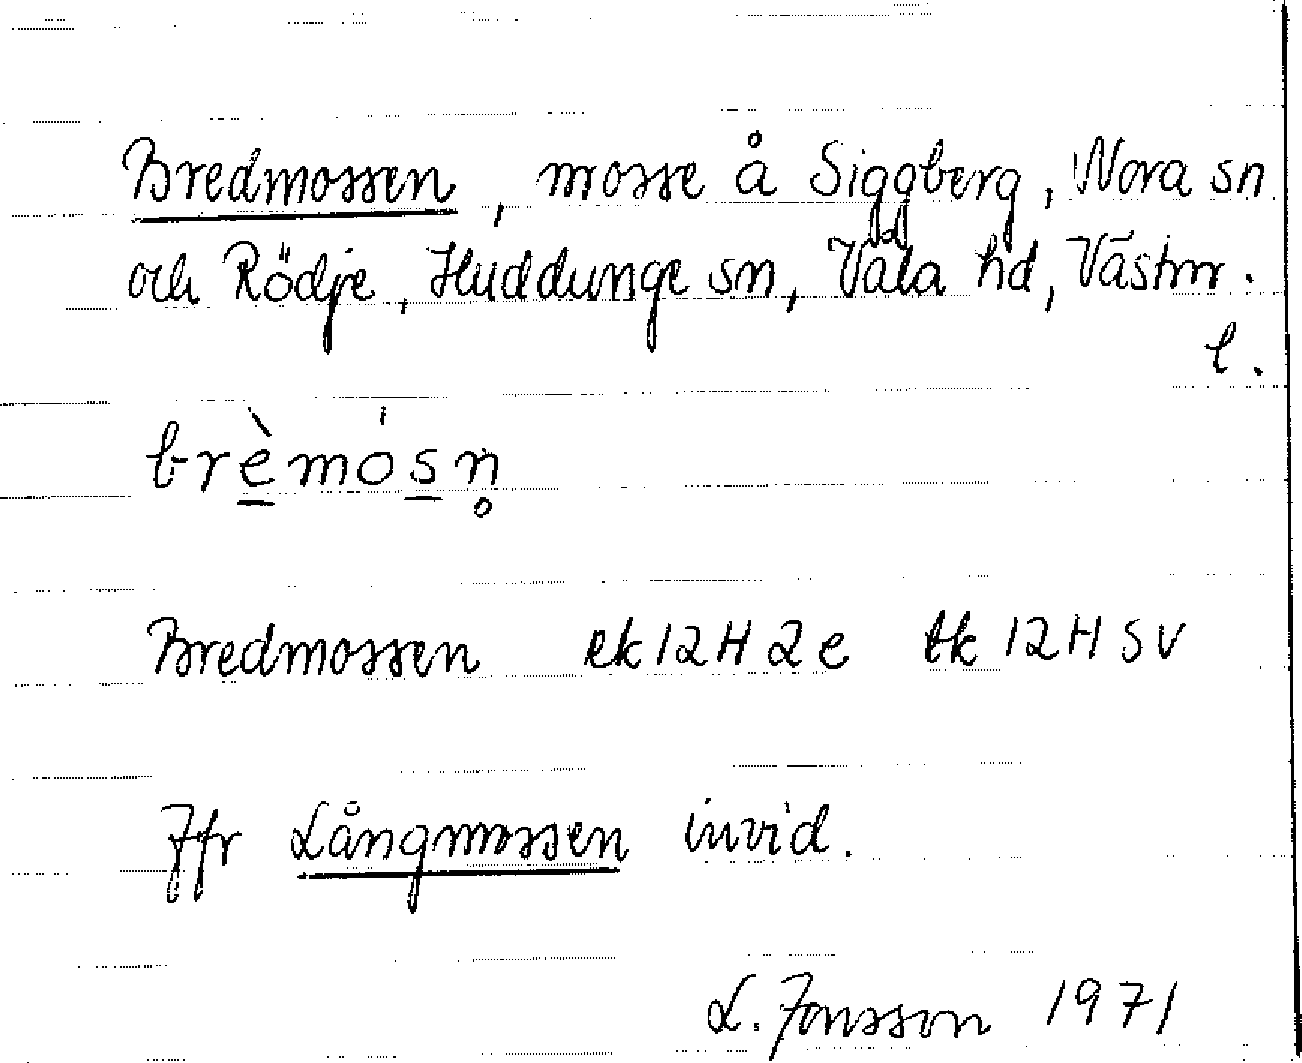 Bredmossen, mosse å Siggberg, Nora sn
och Rödje, Huddunge sn, Våla hd, Västm.
l.
brè̲mós̲n̥
Bredmossen ek 12H2e tk 12H SV
Jfr Långmossen invid.
L. Jonsson 1971